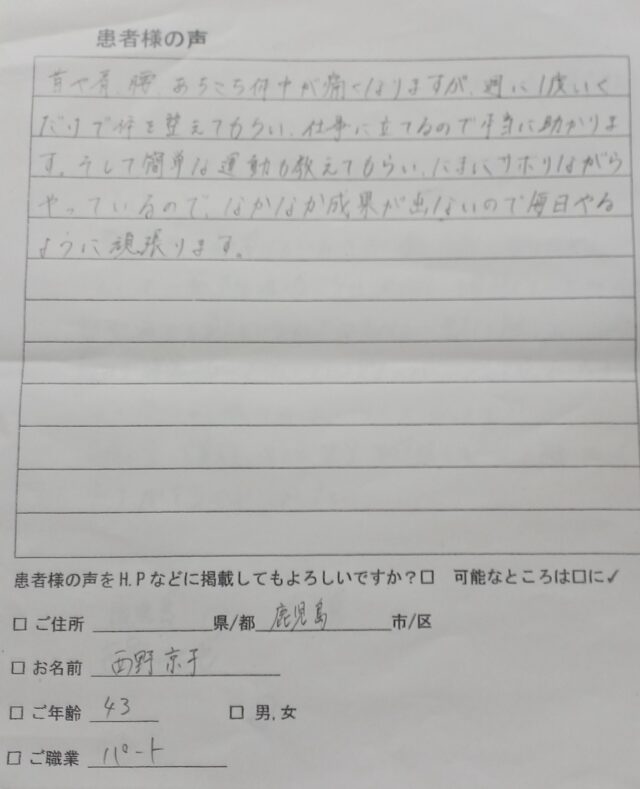 患者様の声
首や肩、腰、あちこち体中が痛くなりますが、週に1度いく
だけで体を整えてもらい、仕事に立てるので本当に助かりま
す。そして簡単な運動も教えてもらい、たまにサボりながら
やっているので、なかなか成果が出ないので毎日やる
ように頑張ります。
患者様の声をH.Pなどに掲載してもよろしいですか?□ 可能なところは□に✓
□ ご住所 県/都 鹿児島 市/区
□ お名前 西野京子
□ ご年齢 43 □ 男,女
□ ご職業 パート